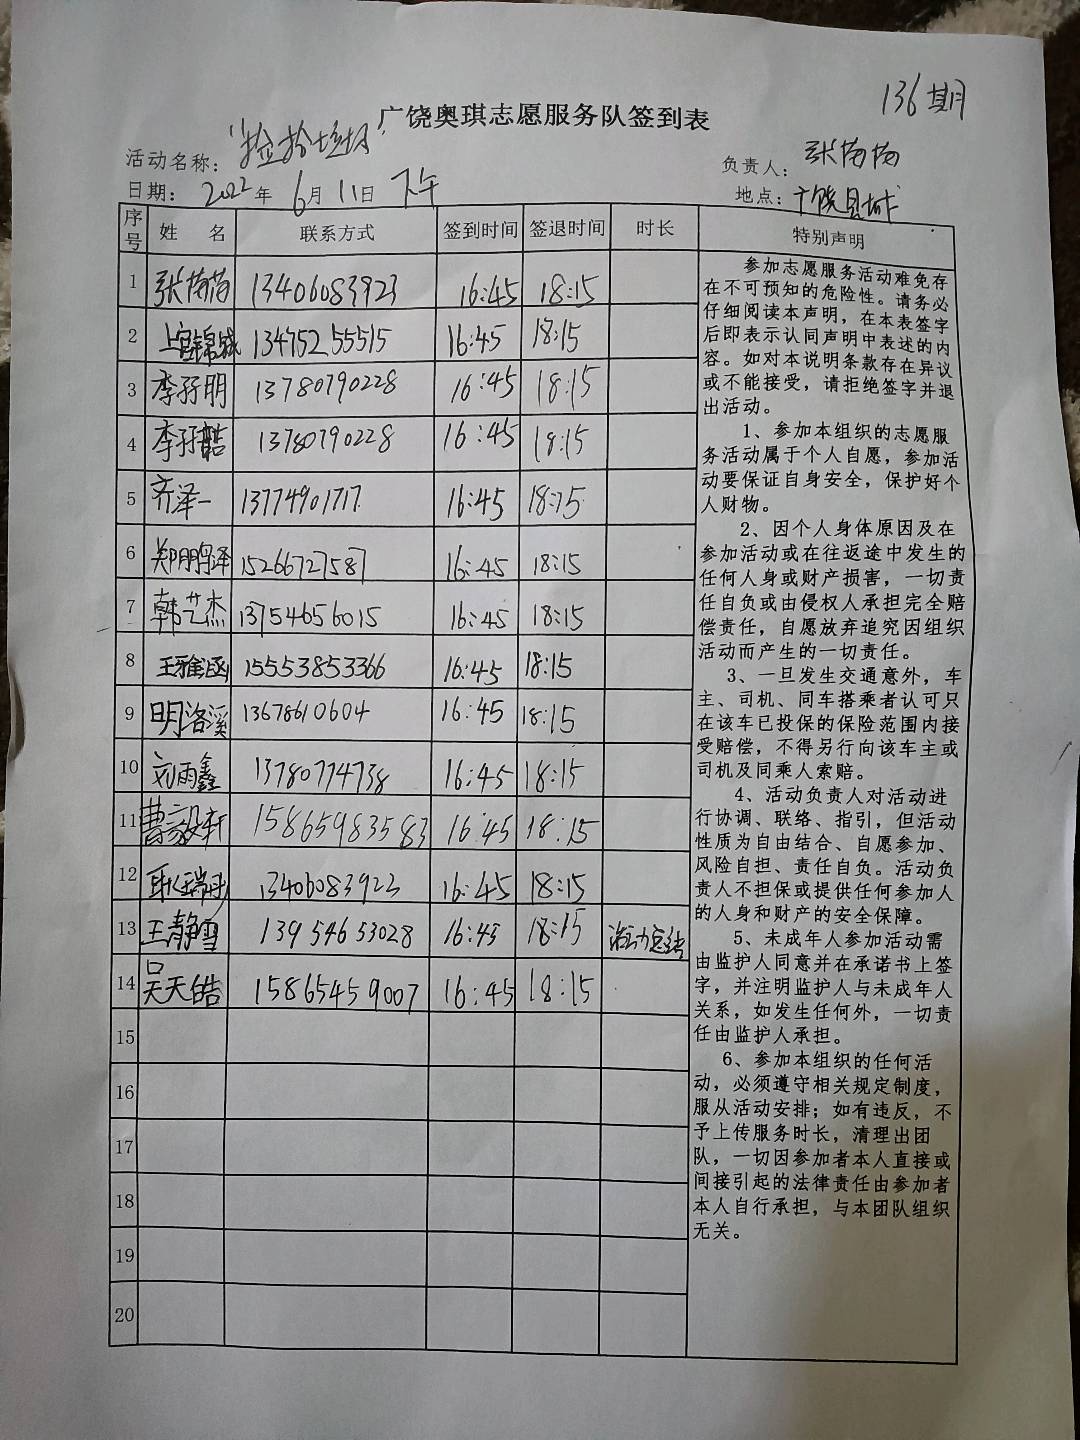 136期
广饶奥琪志愿服务队签到表
活动名称："捡拾垃圾" 负责人：张芮芮
日期：2022年6月11日 下午 地点：广饶县城
序号 姓 名 联系方式 签到时间 签退时间 时长 特别声明
1 张芮芮 13406083923 16:45 18:15
2 上官锦城 13475255515 16:45 18:15
3 李孖明 13780790228 16:45 18:15
4 李孖皓 13780790228 16:45 18:15
5 齐泽一 13774901717 16:45 18:15
6 郑鹏泽 15266727587 16:45 18:15
7 韩艺杰 13754656015 16:45 18:15
8 王雅涵 15553853366 16:45 18:15
9 明洛溪 13678610604 16:45 18:15
10 刘雨鑫 13780774738 16:45 18:15
11 曹毅轩 15865983583 16:45 18:15
12 13406083923 16:45 18:15
13 王静雪 13954653028 16:45 18:15 活动总结
14 吴天皓 15865459007 16:45 18:15
15
16
17
18
19
20
参加志愿服务活动难免存
在不可预知的危险性。请务必
仔细阅读本声明，在本表签字
后即表示认同声明中表述的内
容。如对本说明条款存在异议
或不能接受，请拒绝签字并退
出活动。
1、参加本组织的志愿服
务活动属于个人自愿，参加活
动要保证自身安全，保护好个
人财物。
2、因个人身体原因及在
参加活动或在往返途中发生的
任何人身或财产损害，一切责
任自负或由侵权人承担完全赔
偿责任，自愿放弃追究因组织
活动而产生的一切责任。
3、一旦发生交通意外，车
主、司机、同车搭乘者认可只
在该车已投保的保险范围内接
受赔偿，不得另行向该车主或
司机及同乘人索赔。
4、活动负责人对活动进
行协调、联络、指引，但活动
性质为自由结合、自愿参加、
风险自担、责任自负。活动负
责人不担保或提供任何参加人
的人身和财产的安全保障。
5、未成年人参加活动需
由监护人同意并在承诺书上签
字，并注明监护人与未成年人
关系，如发生任何外，一切责
任由监护人承担。
6、参加本组织的任何活
动，必须遵守相关规定制度，
服从活动安排；如有违反，不
予上传服务时长，清理出团
队，一切因参加者本人直接或
间接引起的法律责任由参加者
本人自行承担，与本团队组织
无关。